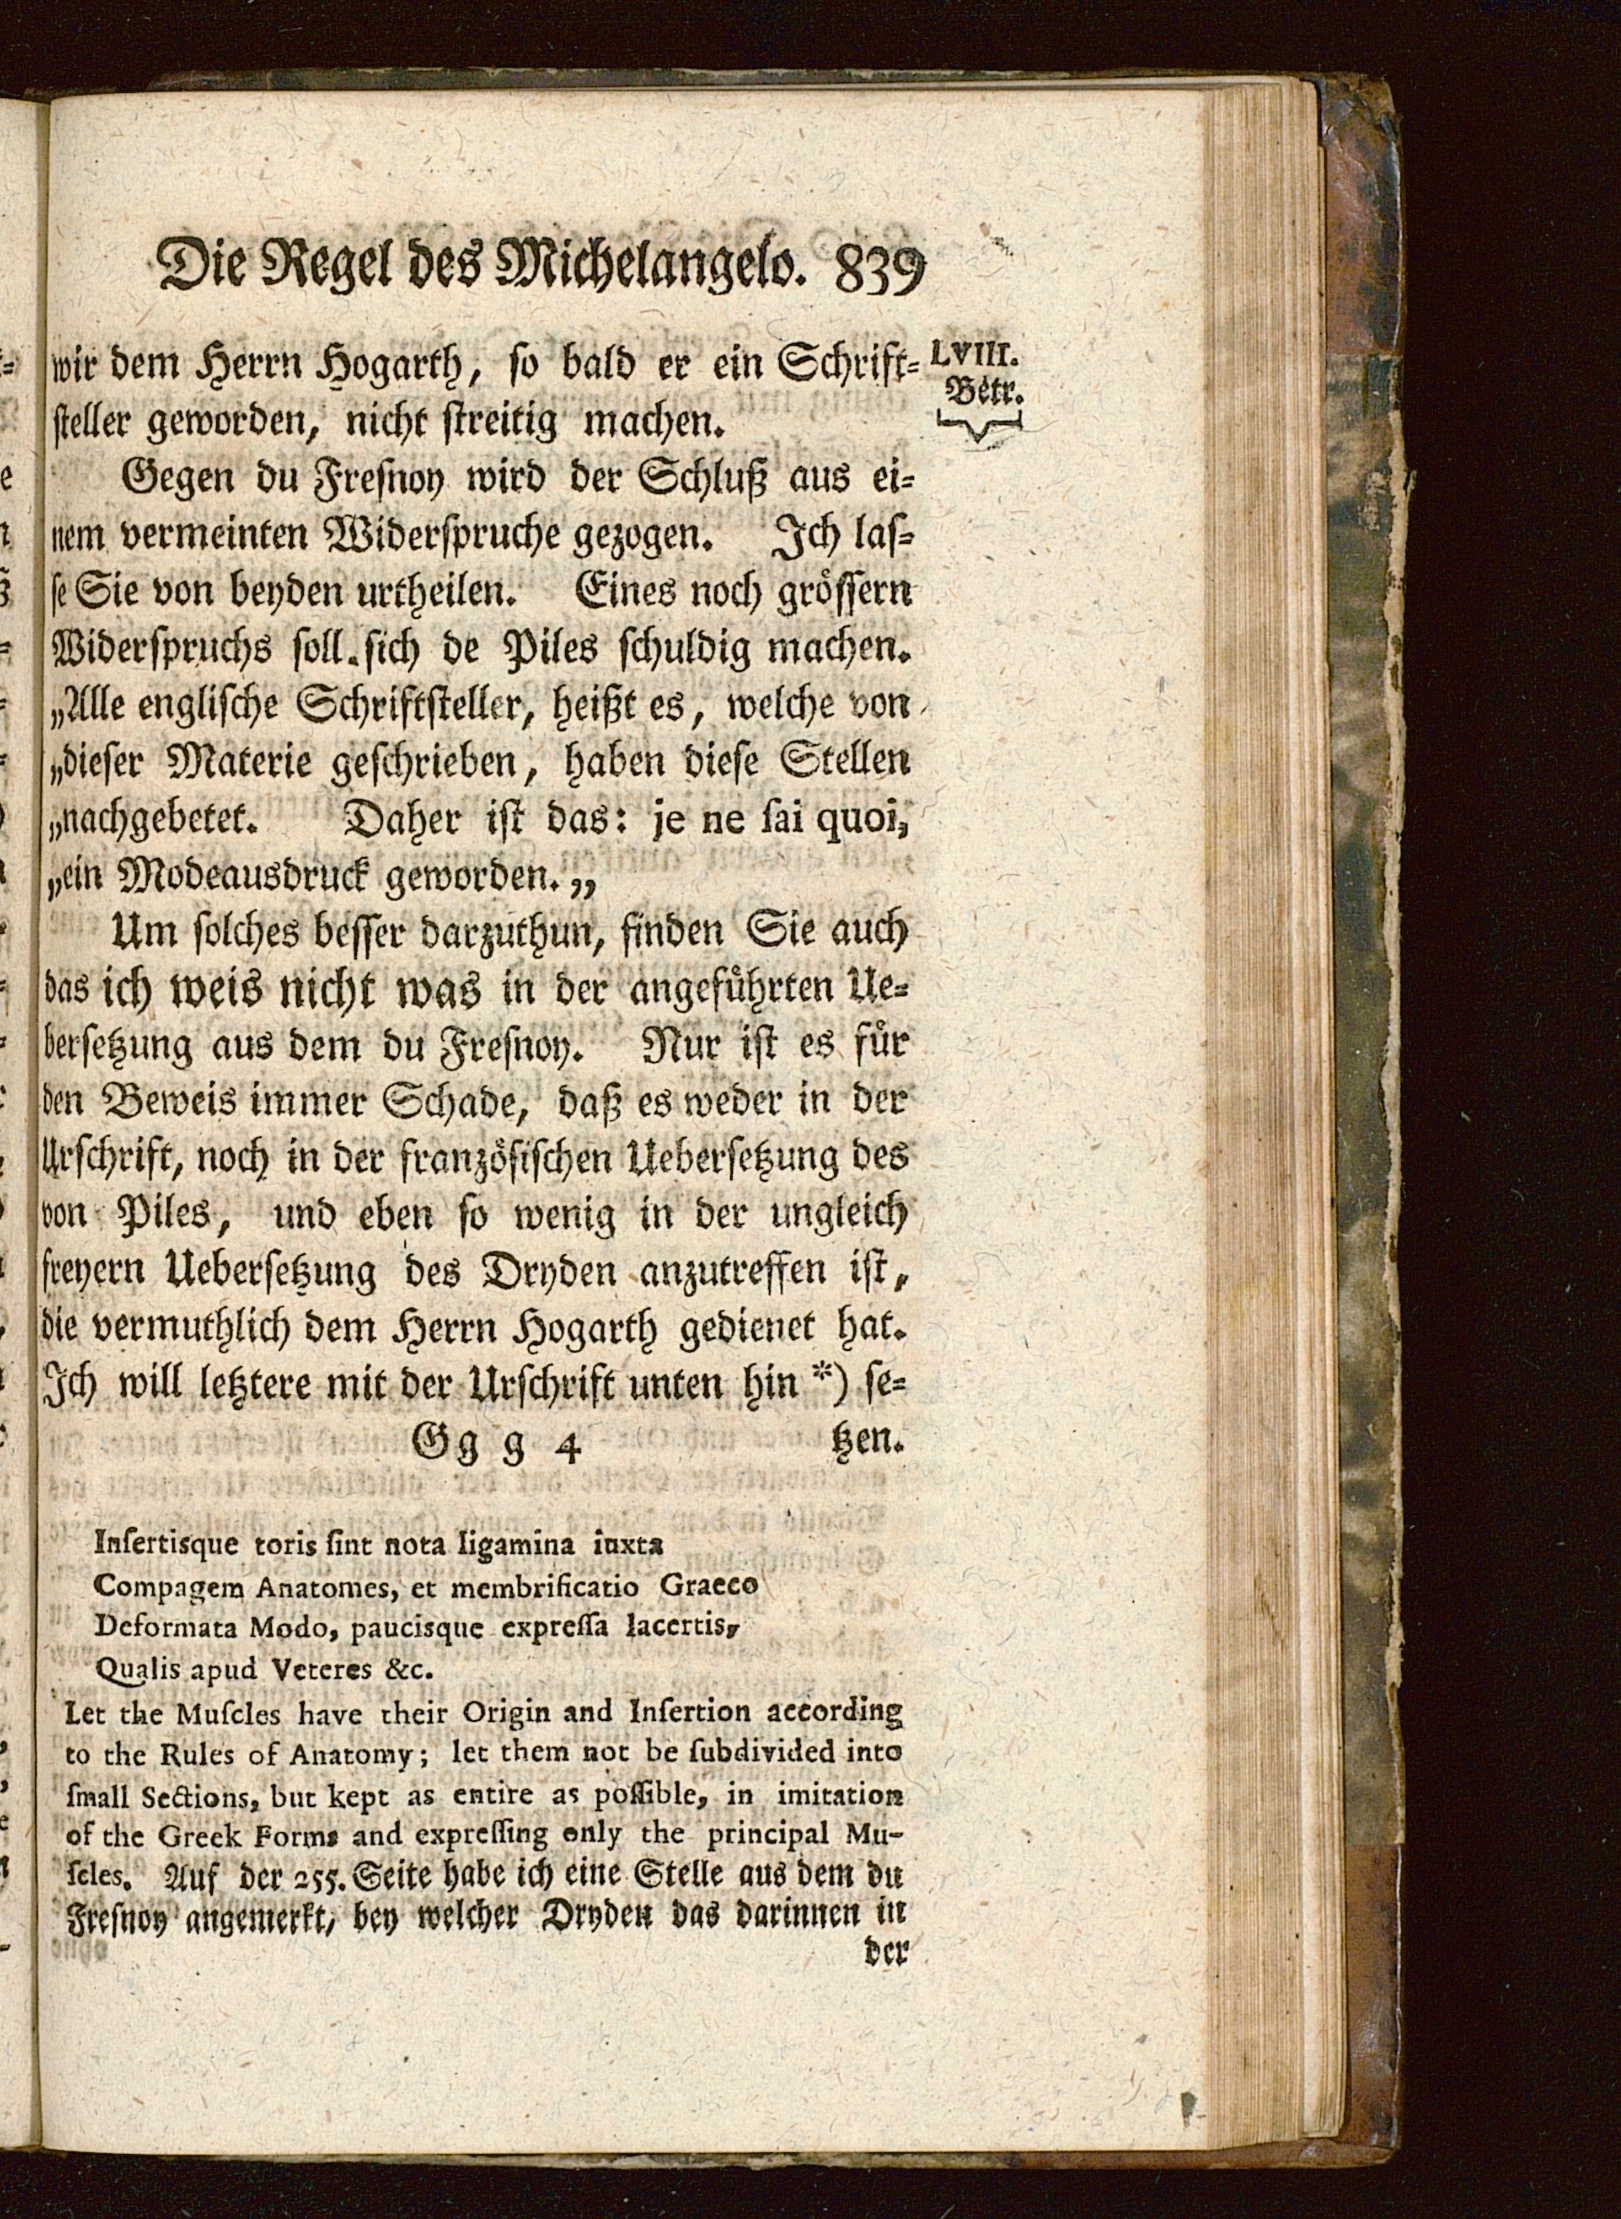 Die Regel des Michelangelo. 839
LVIII.
Betr.
wir dem Herrn Hogarth, so bald er ein Schrift=
steller geworden, nicht streitig machen.
Gegen du Fresnoy wird der Schluß aus ei=
nem vermeinten Widerspruche gezogen. Ich las=
se Sie von beyden urtheilen. Eines noch grössern
Widerspruchs soll sich de Piles schuldig machen.
„Alle englische Schriftsteller, heißt es, welche von
„dieser Materie geschrieben, haben diese Stellen
„nachgebetet. Daher ist das: je ne sai quoi,
„ein Modeausdruck geworden.„
Um solches besser darzuthun, finden Sie auch
das ich weis nicht was in der angeführten Ue=
bersetzung aus dem du Fresnoy. Nur ist es für
den Beweis immer Schade, daß es weder in der
Urschrift, noch in der französischen Uebersetzung des
von Piles, und eben so wenig in der ungleich
freyern Uebersetzung des Dryden anzutreffen ist,
die vermuthlich dem Herrn Hogarth gedienet hat.
Ich will letztere mit der Urschrift unten hin *) se=
Gg g 4 tzen.
Insertisque toris sint nota ligamina iuxta
Compagem Anatomes, et membrificatio Graeco
Deformata Modo, paucisque expressa lacertis,
Qualis apud Veteres &c.
Let the Muscles have their Origin and Insertion according
to the Rules of Anatomy; let them not be subdivided into
small Sections, but kept as entire as possible, in imitation
of the Greek Forms and expressing only the principal Mu-
scles. Auf der 255. Seite habe ich eine Stelle aus dem du
Fresnoy angemerkt, bey welcher Dryden das darinnen in
der